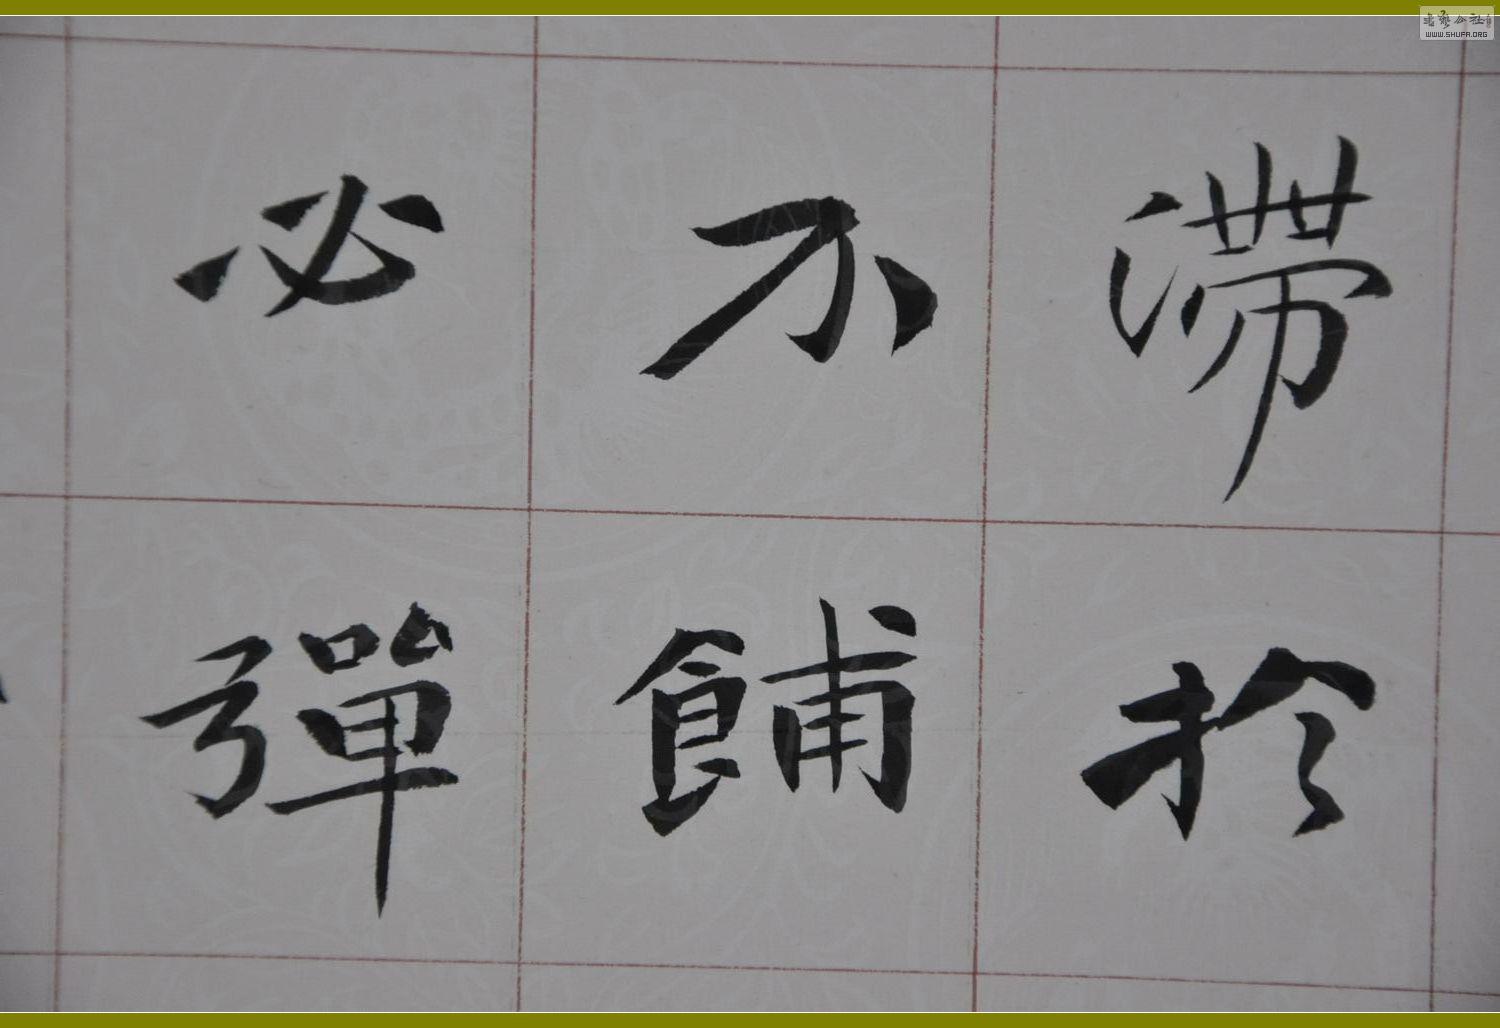 滯於
不餔
必彈
書藝公社
WWW.SHUFA.ORG